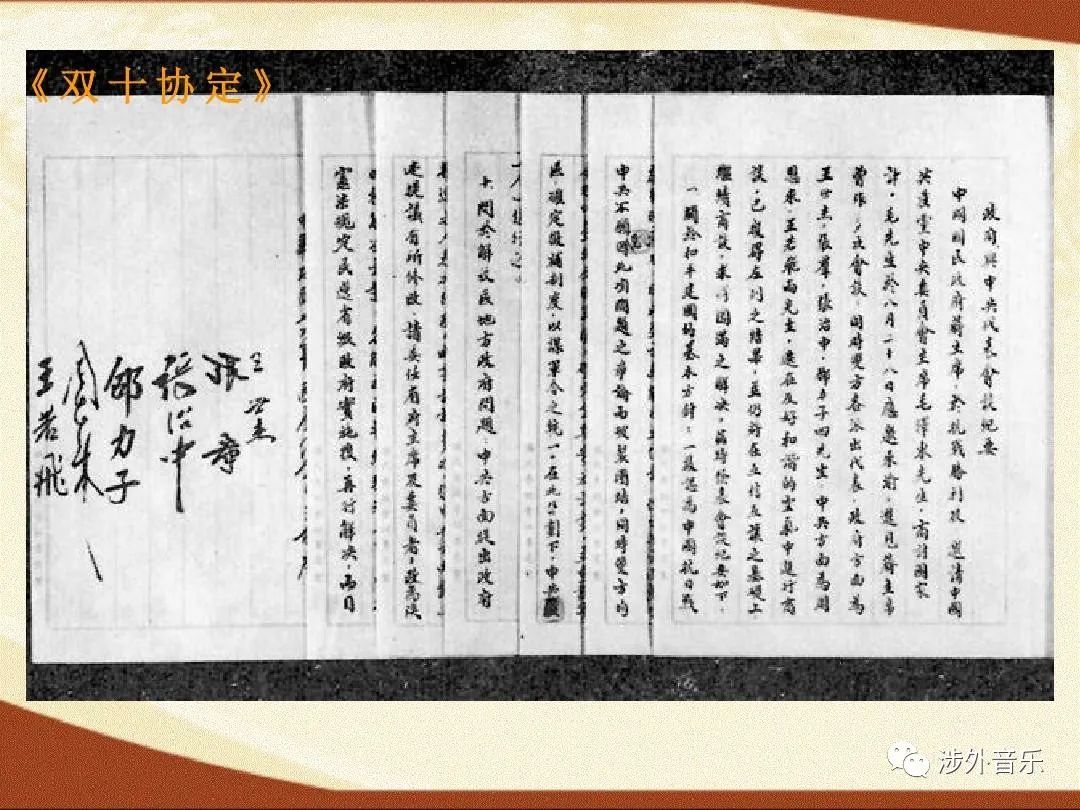 《双十协定》
政府與中共代表會談紀要
中國國民政府蔣主席,於抗戰勝利後,邀請中國
共產黨中央委員會主席毛澤東先生,商討國家
計,毛先生於八月二十八日應邀來渝,進見蔣主席
曾作多次會談,同時雙方各派出代表,政府方面為
王世杰,張羣,張治中,邵力子四先生,中共方面為周
恩來,王若飛兩先生,迭在友好和諧的空氣中進行商
談,已獲得左列之結果,並仍將在互信互讓之基礎上
繼續商談,求得圓滿之解決,茲特發表會談紀要如下,
一關於和平建國的基本方針:一致認為中國抗日戰
中共不願因此有關問題之爭論而破裂團結,同時雙方均
區,確定徵補制度,以謀軍令之統一。在此計劃下,中共
十關於解放區地方政府問題:中共方面提出政府
提議有所修改,請任省府主席及委員者,改為
憲法規定民選省級政府實施後,再行解決,而目
王世杰
張羣
張治中
邵力子
周恩來
王若飛
涉外音乐